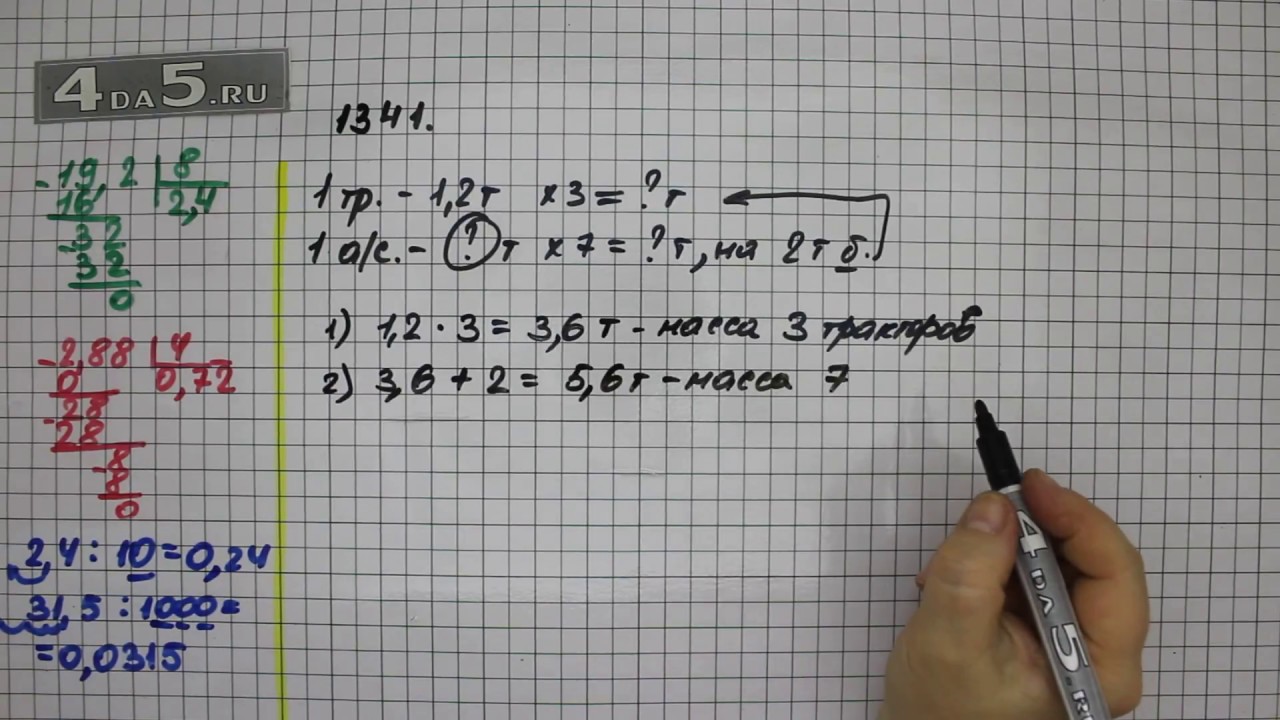 4DA5.RU
1341.
1 тр. - 1,2т ×3 = ?т
1 а/с. - ?т ×7 = ?т, на 2т б.
1) 1,2 · 3 = 3,6 т - масса 3 тракторов
2) 3,6 + 2 = 5,6т - масса 7
- 19,2 | 8
16 | 2,4
- 32
32
0
- 2,88 | 4
0 | 0,72
- 28
28
- 8
8
0
2,4 : 10 = 0,24
31,5 : 1000 =
= 0,0315
4DA5.R